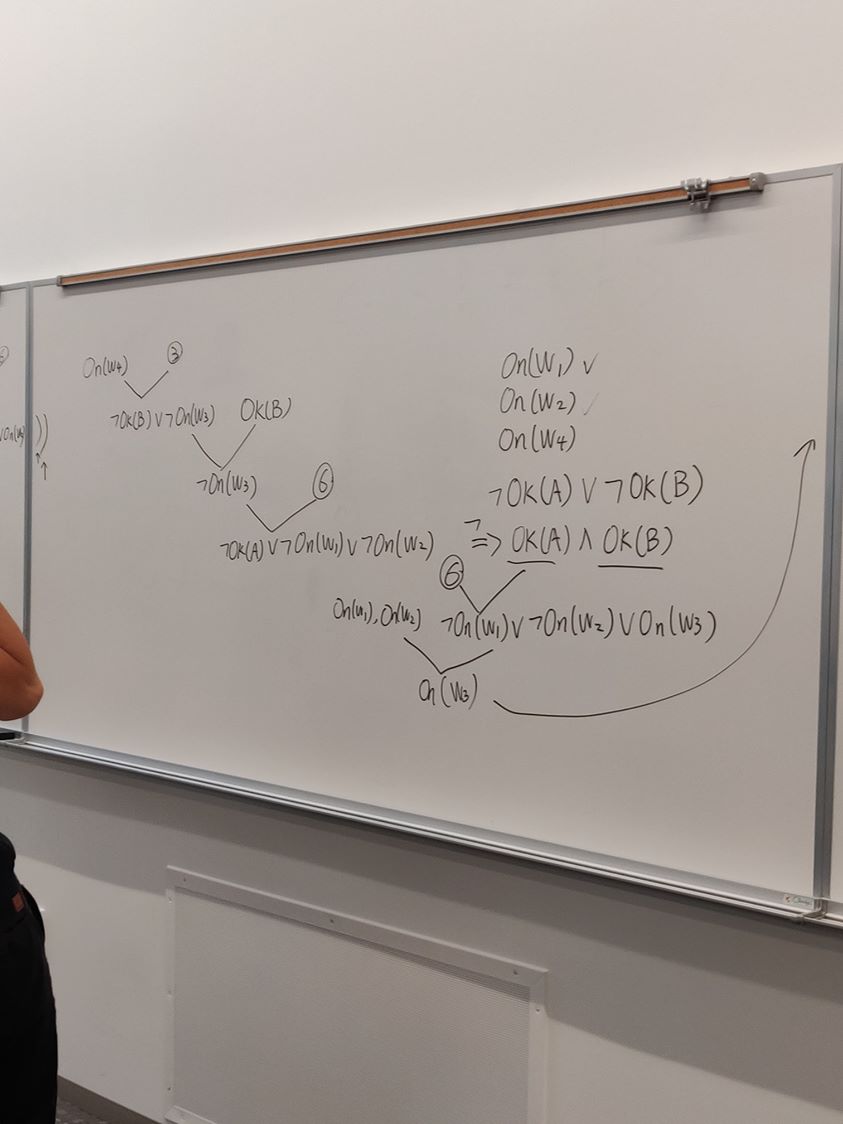 On(W4) ③
¬OK(B) ∨ ¬On(W3) OK(B)
¬On(W3) ⑥
¬OK(A) ∨ ¬On(W1) ∨ ¬On(W2)
On(W1) ✓
On(W2) ✓
On(W4)
¬OK(A) ∨ ¬OK(B)
¬
=> OK(A) ∧ OK(B)
⑥
On(W1), On(W2) ¬On(W1) ∨ ¬On(W2) ∨ On(W3)
On(W3)